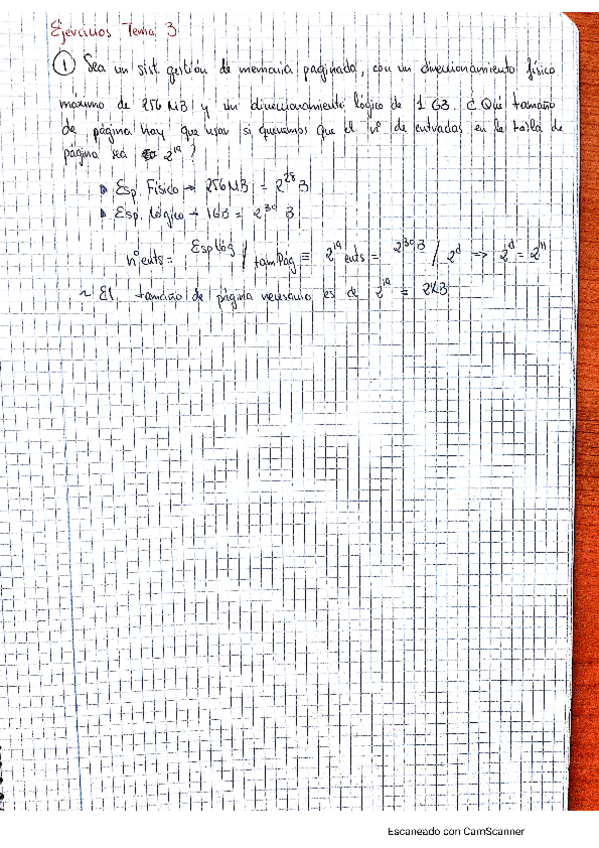 Ejercicios Tema 3
① Sea un sist. gestión de memoria paginada, con un direccionamiento físico
máximo de 256 MB y un direccionamiento lógico de 1 GB. ¿Qué tamaño
de página hay que usar si queremos que el nº de entradas en la tabla de
página sea 2^19?
Esp. Físico → 256MB = 2^28 B
Esp. Lógico → 1GB = 2^30 B
nº ents = Esp Lóg / tamPág ≡ 2^19 ents = 2^30 B / 2^d => 2^d = 2^11
~ El tamaño de página necesario es de = 2KB
Escaneado con CamScanner